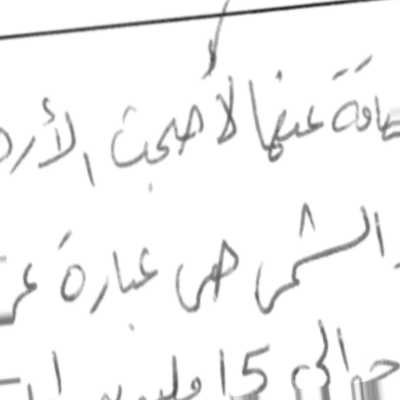 عنها لأصبحت الأرض
الشمس هي عبارة عن
حوالي 15 مليون